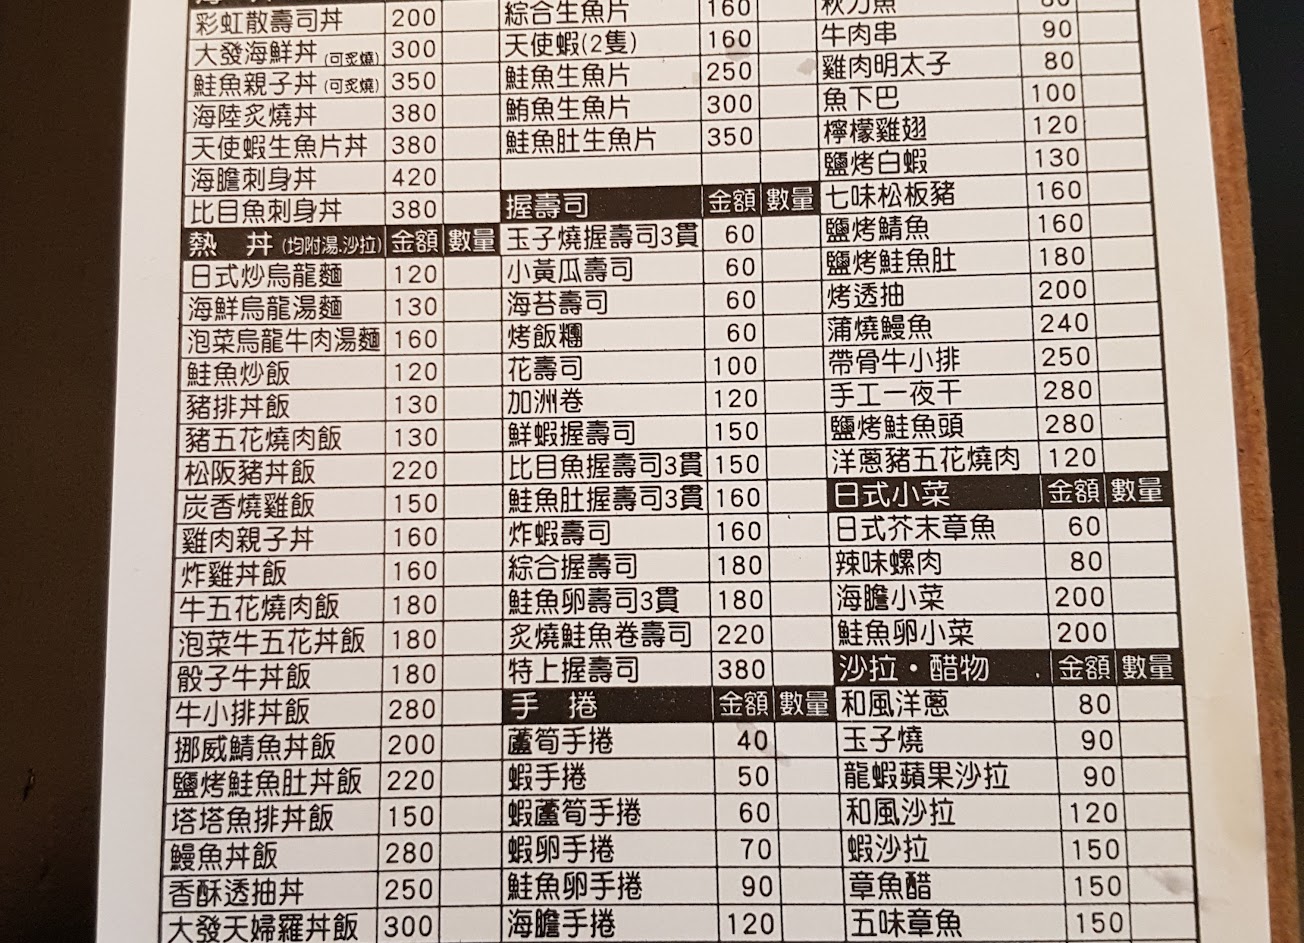 彩虹散壽司丼 200
大發海鮮丼(可炙燒) 300
鮭魚親子丼(可炙燒) 350
海陸炙燒丼 380
天使蝦生魚片丼 380
海膽刺身丼 420
比目魚刺身丼 380
熱 丼(均附湯.沙拉) 金額 數量
日式炒烏龍麵 120
海鮮烏龍湯麵 130
泡菜烏龍牛肉湯麵 160
鮭魚炒飯 120
豬排丼飯 130
豬五花燒肉飯 130
松阪豬丼飯 220
炭香燒雞飯 150
雞肉親子丼 160
炸雞丼飯 160
牛五花燒肉飯 180
泡菜牛五花丼飯 180
骰子牛丼飯 180
牛小排丼飯 280
挪威鯖魚丼飯 200
鹽烤鮭魚肚丼飯 220
塔塔魚排丼飯 150
鰻魚丼飯 280
香酥透抽丼 250
大發天婦羅丼飯 300
綜合生魚片 160
天使蝦(2隻) 160
鮭魚生魚片 250
鮪魚生魚片 300
鮭魚肚生魚片 350
握壽司 金額 數量
玉子燒握壽司3貫 60
小黃瓜壽司 60
海苔壽司 60
烤飯糰 60
花壽司 100
加洲卷 120
鮮蝦握壽司 150
比目魚握壽司3貫 150
鮭魚肚握壽司3貫 160
炸蝦壽司 160
綜合握壽司 180
鮭魚卵壽司3貫 180
炙燒鮭魚卷壽司 220
特上握壽司 380
手 捲 金額 數量
蘆筍手捲 40
蝦手捲 50
蝦蘆筍手捲 60
蝦卵手捲 70
鮭魚卵手捲 90
海膽手捲 120
秋刀魚 80
牛肉串 90
雞肉明太子 80
魚下巴 100
檸檬雞翅 120
鹽烤白蝦 130
七味松板豬 160
鹽烤鯖魚 160
鹽烤鮭魚肚 180
烤透抽 200
蒲燒鰻魚 240
帶骨牛小排 250
手工一夜干 280
鹽烤鮭魚頭 280
洋蔥豬五花燒肉 120
日式小菜 金額 數量
日式芥末章魚 60
辣味螺肉 80
海膽小菜 200
鮭魚卵小菜 200
沙拉・醋物 金額 數量
和風洋蔥 80
玉子燒 90
龍蝦蘋果沙拉 90
和風沙拉 120
蝦沙拉 150
章魚醋 150
五味章魚 150